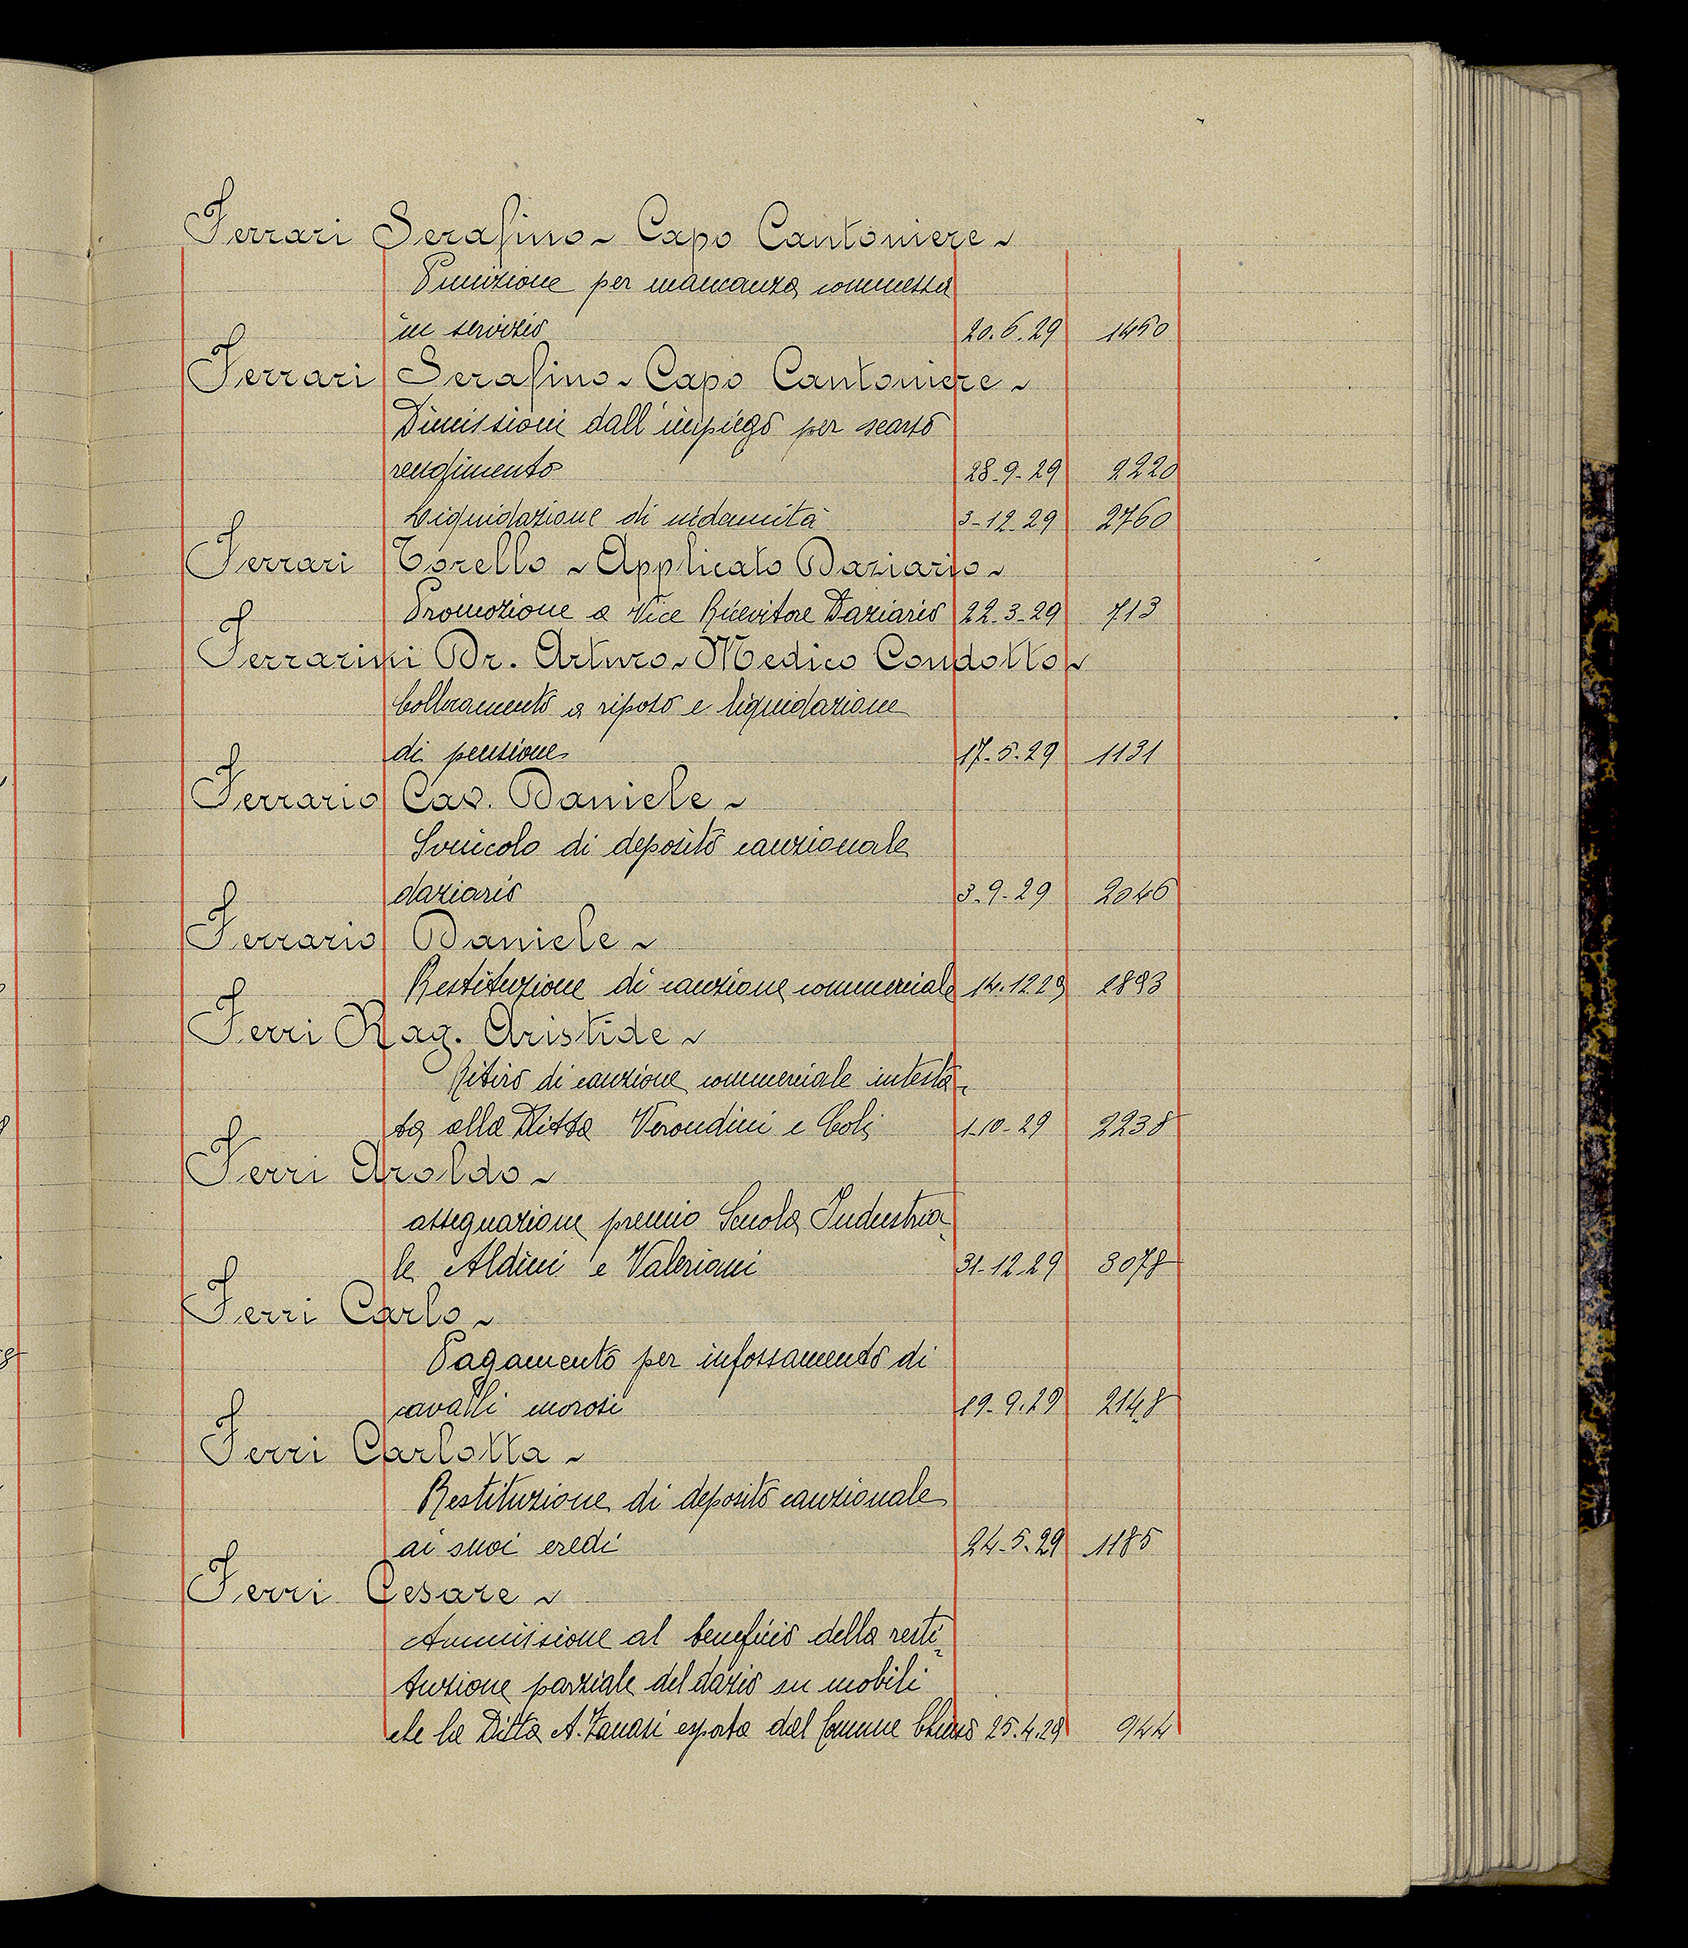 Ferrari Serafino ~ Capo Cantoniere ~
Punizione per mancanza commessa
in servizio 20.6.29 1450
Ferrari Serafino ~ Capo Cantoniere ~
Dimissioni dall'impiego per scarso
rendimento 28-9-29 2220
Liquidazione di indennità 3-12-29 2760
Ferrari Torello ~ Applicato Daziario ~
Promozione a Vice Ricevitore Daziario 22.3.29 713
Ferrarini Dr. Arturo ~ Medico Condotto ~
Collocamento a riposo e liquidazione
di pensione 17-5-29 1131
Ferrario Cav. Daniele ~
Svincolo di deposito cauzionale
daziario 3-9-29 2046
Ferrario Daniele ~
Restituzione di cauzione commerciale 14.12 29 2893
Ferri Rag. Aristide ~
Ritiro di cauzione commerciale intesta-
ta alla Ditta Verondini e Coli 1-10-29 2238
Ferri Aroldo ~
assegnazione premio Scuola Industria-
le Aldini e Valeriani 31-12 29 3078
Ferri Carlo ~
Pagamento per infossamento di
cavalli morosi 19-9.29 2148
Ferri Carlotta ~
Restituzione di deposito cauzionale
ai suoi eredi 24-5-29 1185
Ferri Cesare ~
Ammissione al beneficio della resti-
tuzione parziale del dazio su mobili
che la Ditta A. Zanasi esporta dal Comune Chiuso 25.4.29 944